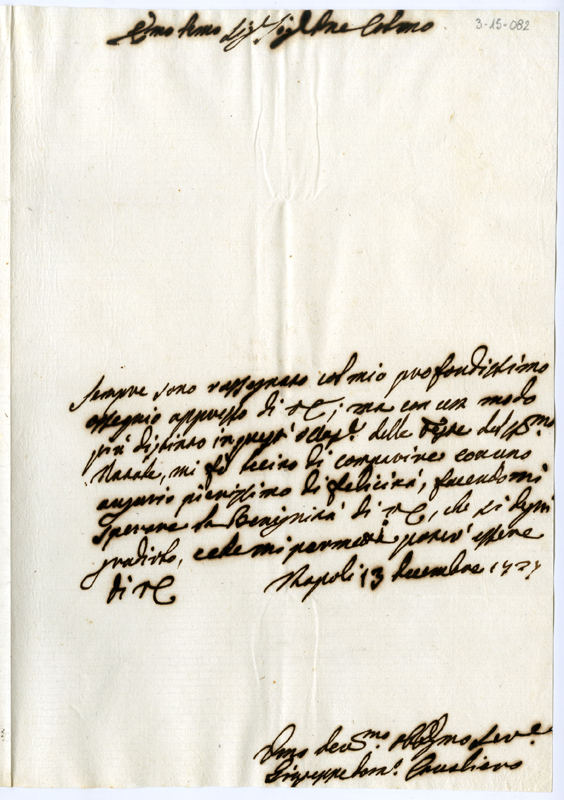 3-15-082
Emo Remo Sig.r Sig.r Pne Colmo
Sempre sono rassegnato col mio profondissimo
ossequio appresso di VE; ma con un modo
più distinto in quest' delle Feste del SS.mo
Natale, mi fò lecito di comparire con uno
augurio pienissimo di felicità, facendomi
sperare la Benignità di VE, che si degni
gradirlo, e che mi permetti poter' essere
di VE Napoli 13 decembre 1727
Dmo Obblmo Serv.e
Giuseppe Cavaliero